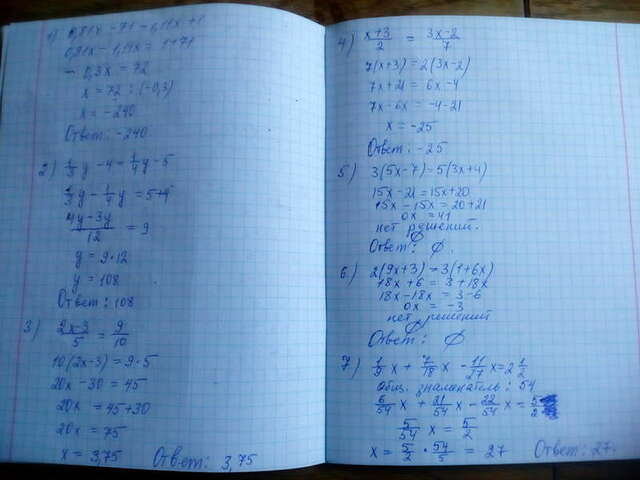 1) 0,81x - 71 = 1,11x + 1
0,81x - 1,11x = 1+71
- 0,3x = 72
x = 72 : (-0,3)
x = -240
Ответ: -240
2) 1/3 y - 4 = 1/4 y - 5
1/3 y - 1/4 y = 5+4
4y-3y/12 = 9
y = 9·12
y = 108
Ответ: 108
3) 2x-3/5 = 9/10
10(2x-3) = 9·5
20x - 30 = 45
20x = 45+30
20x = 75
x = 3,75 Ответ: 3,75
4) x+3/2 = 3x-2/7
7(x+3) = 2(3x-2)
7x+21 = 6x-4
7x-6x = -4-21
x = -25
Ответ: -25
5) 3(5x-7) = 5(3x+4)
15x-21 = 15x+20
15x-15x = 20+21
0x = 41
нет решений.
∅
Ответ: ∅.
6) 2(9x+3) = 3(1+6x)
18x+6 = 3+18x
18x-18x = 3-6
0x = -3
нет решений
∅
Ответ: ∅
7) 1/9 x + 7/18 x - 11/27 x = 2 1/2
Общ. знаменатель: 54
6/54 x + 21/54 x - 22/54 x = 5/2
5/54 x = 5/2
x = 5/2 · 54/5 = 27 Ответ: 27.